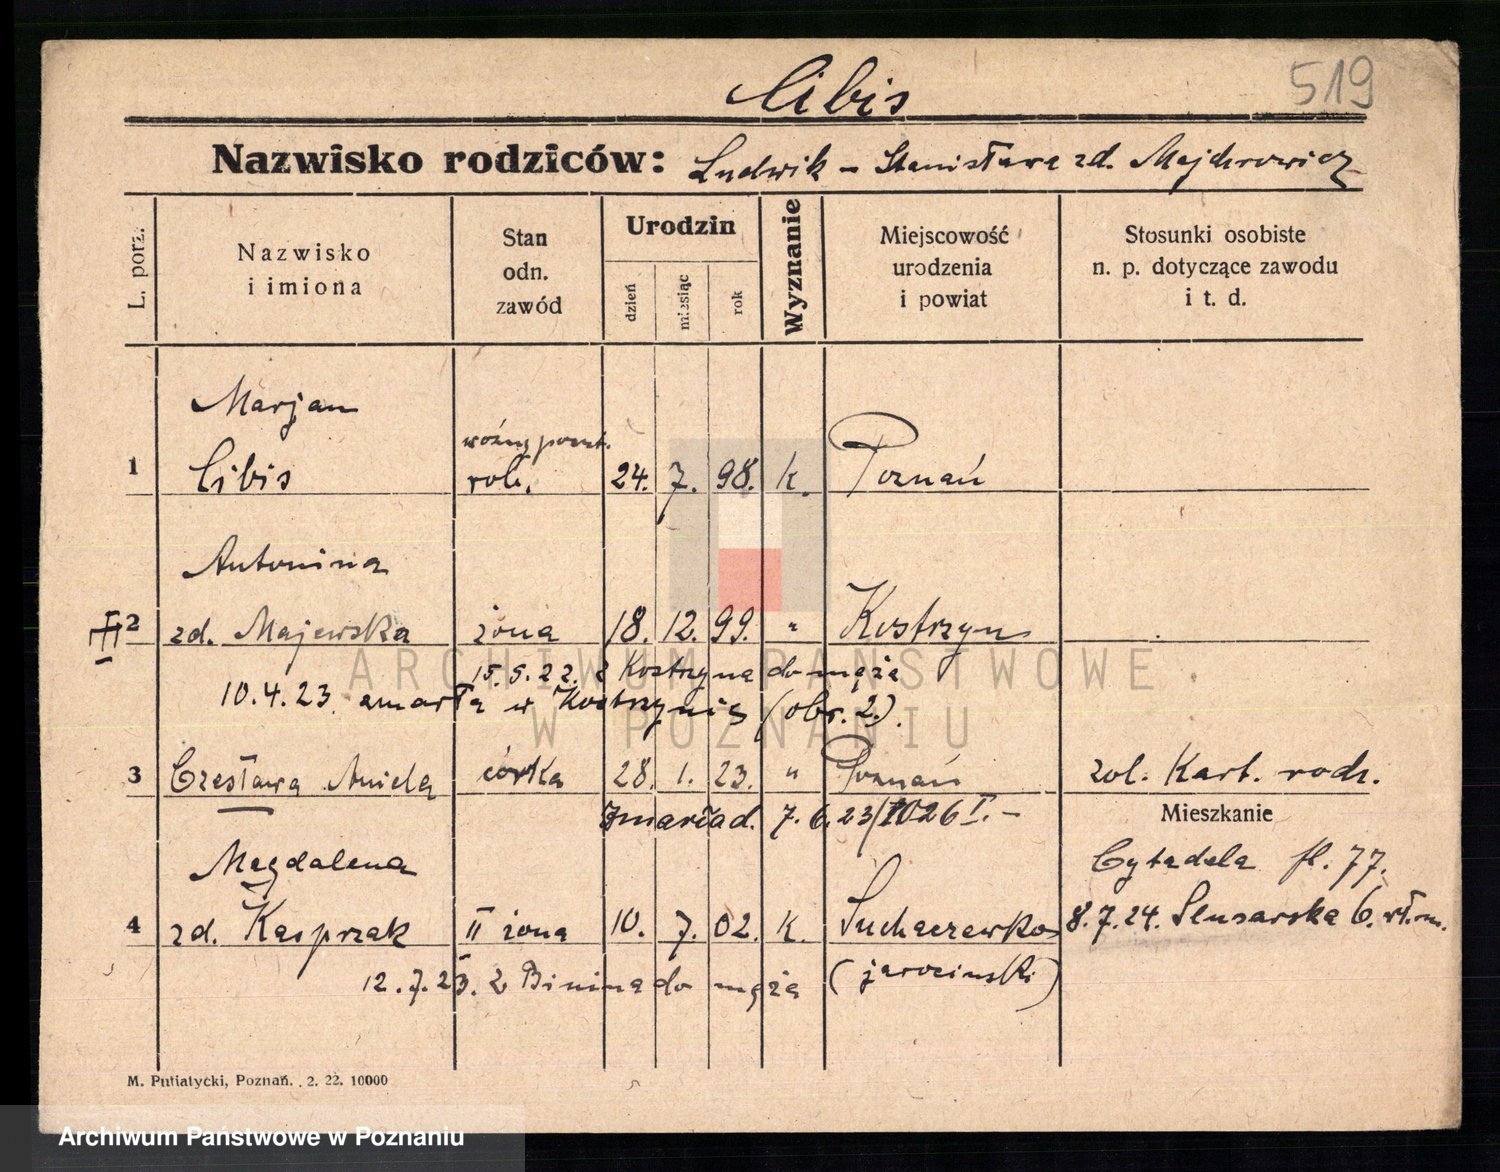 Cibis
519
Nazwisko rodziców: Ludwik - Stanisława zd. Majchrowicz
L. porz.
Nazwisko i imiona
Stan odn. zawód
Urodzin
dzień
miesiąc
rok
Wyznanie
Miejscowość urodzenia i powiat
Stosunki osobiste n. p. dotyczące zawodu i t. d.
Marjan
woźny
1 Cibis rob. 24. 7. 98. k. Poznań
Antonina
2 zd. Majewska żona 18. 12. 99. " Kostrzyn
15.5.22. z Kostrzyna do męża
10.4.23 zmarła w Kostrzynie (obr. 2.)
3 Czesława Aniela córka 28. 1. 23. " Poznań zal. Kart. rodz.
Zmarła d. 7. 6. 23/1026 I. -
Mieszkanie
Magdalena Cytadela fl. 77.
4 zd. Kasprzak II żona 10. 7. 02. k. Suchaczewko 8.7.24. Slusarska 6.
12.7.23. z Binina do męża (jarocinski)
M. Putiatycki, Poznań. . 2. 22. 10000
ARCHIWUM PAŃSTWOWE
W POZNANIU
Archiwum Państwowe w Poznaniu